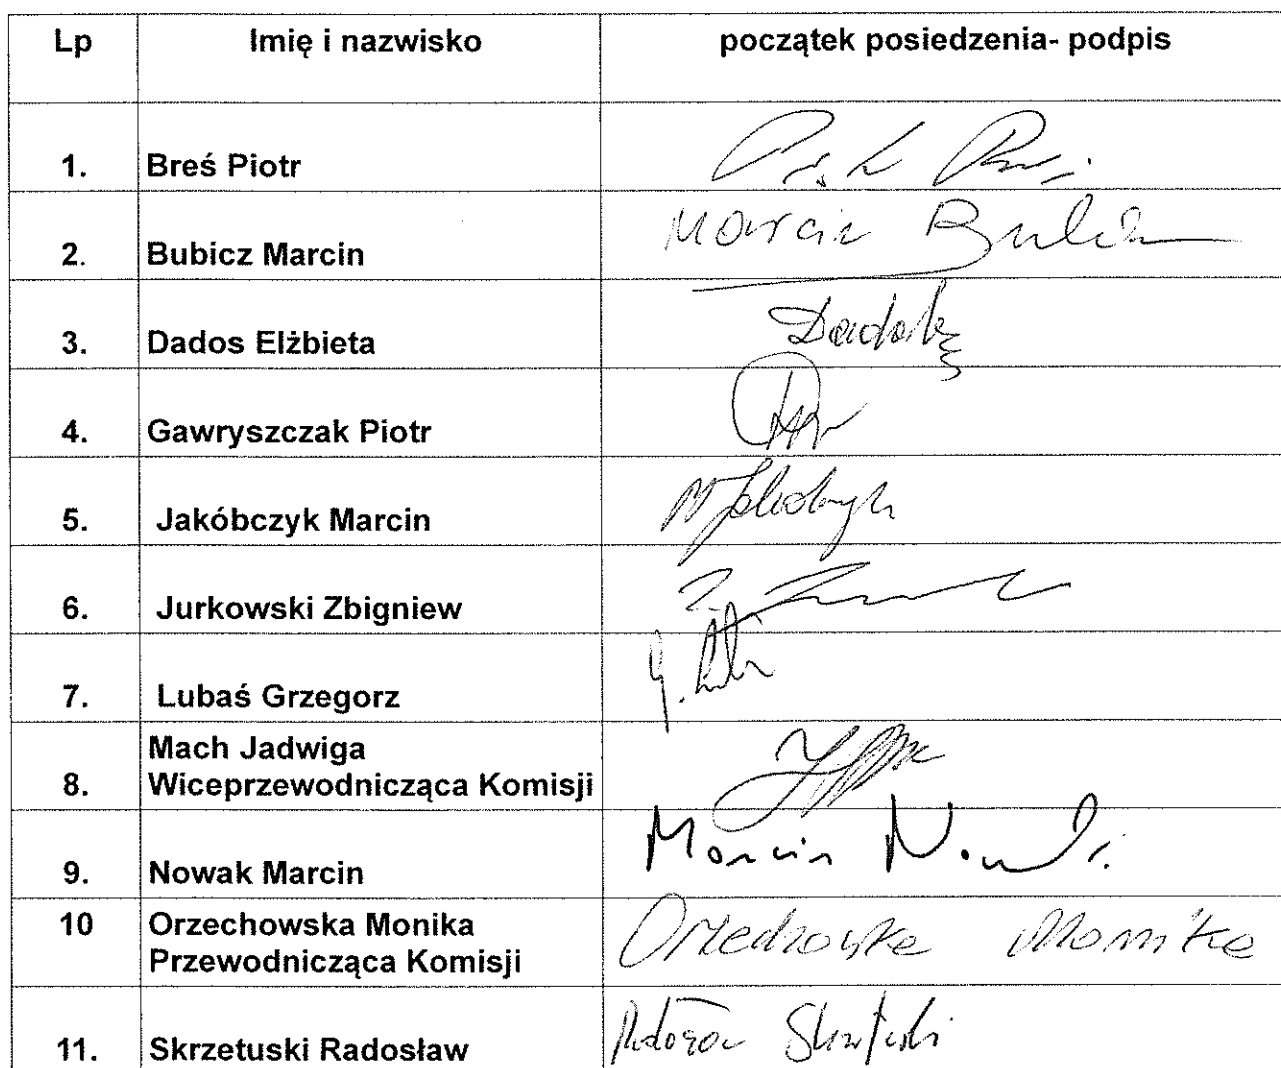 Lp Imię i nazwisko początek posiedzenia- podpis
1. Breś Piotr
2. Bubicz Marcin Marcin
3. Dados Elżbieta
4. Gawryszczak Piotr
5. Jakóbczyk Marcin
6. Jurkowski Zbigniew
7. Lubaś Grzegorz
Mach Jadwiga
8. Wiceprzewodnicząca Komisji
9. Nowak Marcin Marcin Nowak
10 Orzechowska Monika Orzechowska Monika
Przewodnicząca Komisji
11. Skrzetuski Radosław Radosław Skrzetuski